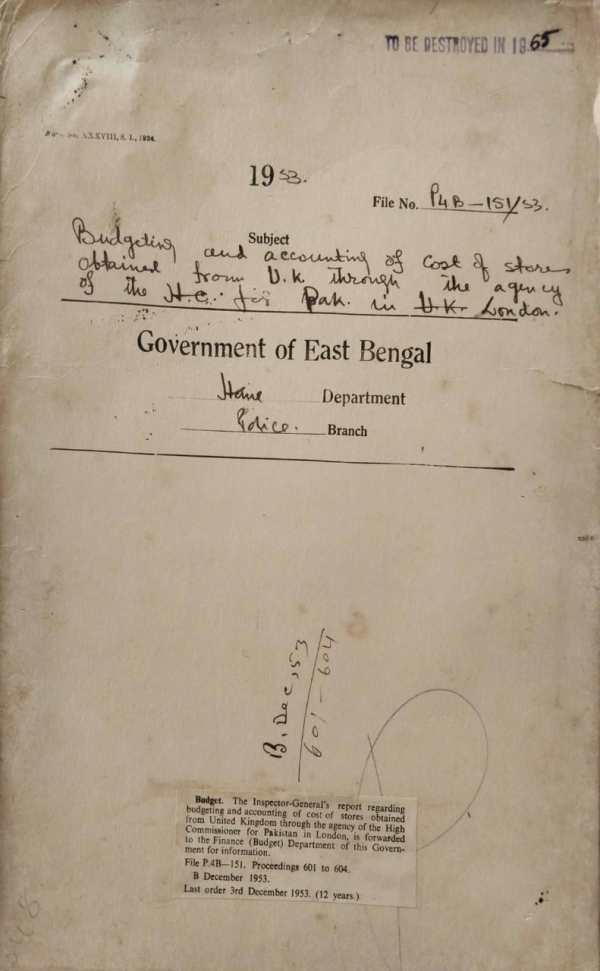 TO BE DESTROYED IN 1965
XXXVIII, S. I., 1924.
1953.
File No. P4B-151/53.
Subject
Budgeting and accounting of cost of stores
obtained from U.K through the agency
of the H.C. for Pak. in U.K. London.
Government of East Bengal
Home Department
Police. Branch
B, Dec, 53
601-604
Budget. The Inspector-General's report regarding
budgeting and accounting of cost of stores obtained
from United Kingdom through the agency of the High
Commissioner for Pakistan in London, is forwarded
to the Finance (Budget) Department of this Govern-
ment for information.
File P.4B—151. Proceedings 601 to 604.
B December 1953.
Last order 3rd December 1953. (12 years.)